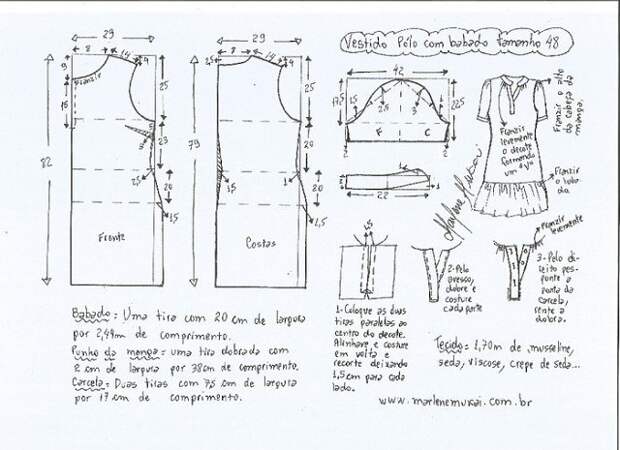 Vestido Pólo com babado tamanho 48
29
8
14
4
9
Franzir
16
25
82
23
15
20
1,5
Frente
29
2,5
8
14
4
25
79
15
20
1,5
Costas
42
17,5
15
2,5
3
22,5
F
C
2
2
22
1
Franzir o alto
da cabeça da
manga.
Franzir
levemente
o decote
formando
um oval
Franzir
o babado
Marlene Mukai
1-Coloque as duas
tiras paralelas ao
centro do decote.
Alinhave e costure
em volta e
recorte deixando
1,5cm para cada
lado.
2-Pelo
avesso,
dobre e
costure
cada parte
Franzir
levemente
3-Pelo di-
reito pes-
ponte a
ponta da
carcela,
rente a
dobra.
Babado: Uma tira com 20 cm de largura
por 2,49m de comprimento.
Punho da manga: uma tira dobrada com
2 cm de largura por 38cm de comprimento.
Carcela: Duas tiras com 7,5 cm de largura
por 17 cm de comprimento.
Tecido: 1,70m de musseline,
seda, viscose, crepe de seda...
www.marlenemukai.com.br